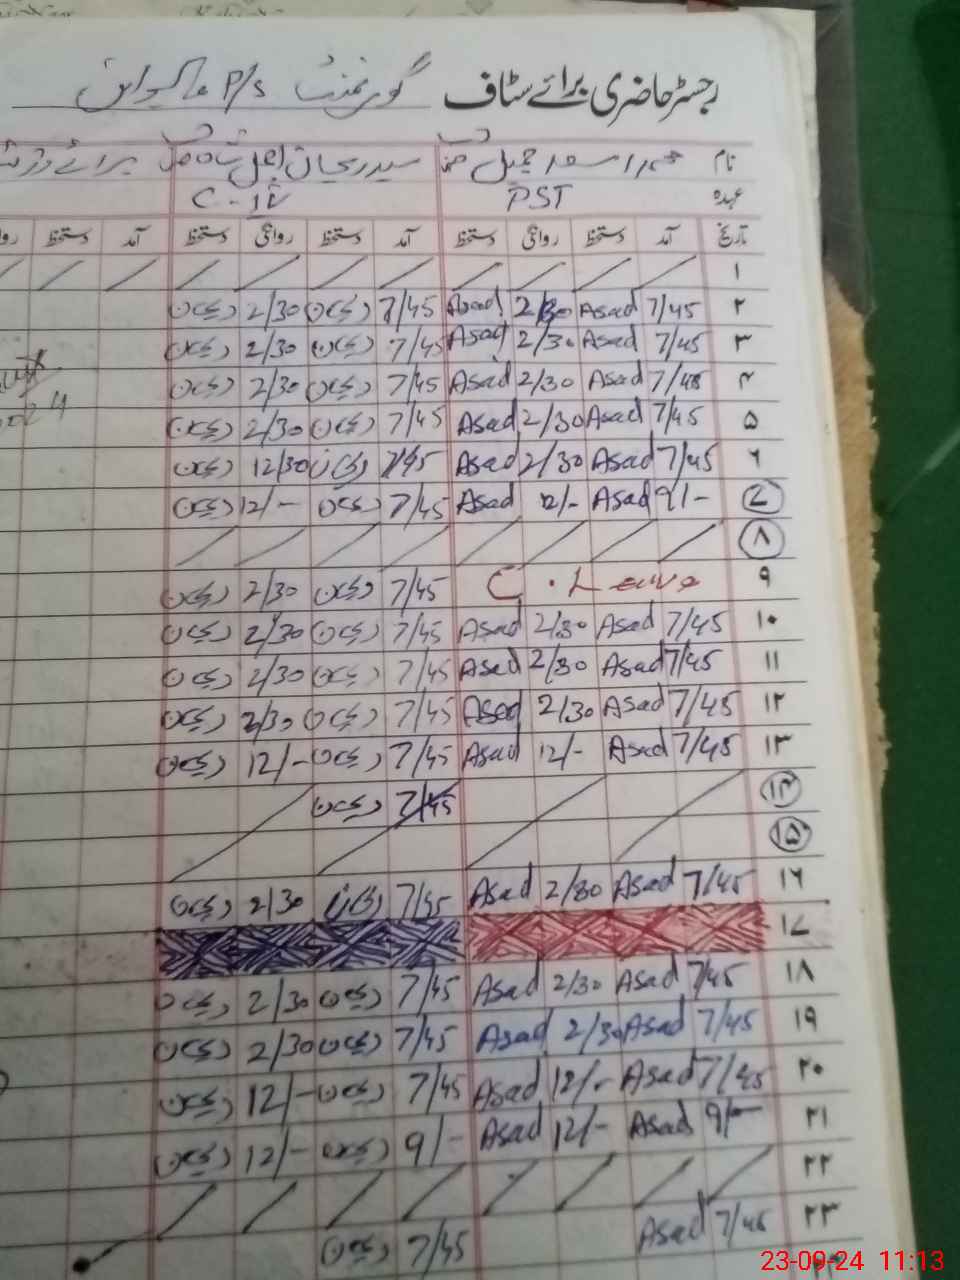 رجسٹر حاضری برائے سٹاف گورنمنٹ P/S
نام محمد اسعد جمیل سید ریحان برائے
عہدہ PST C-IV
تاریخ آمد دستخط روانگی دستخط آمد دستخط روانگی دستخط آمد دستخط
۱
۲ 7/45 Asad 2/30 Asad 7/45 ریحان 2/30 ریحان
۳ 7/45 Asad 2/30 Asad 7/45 ریحان 2/30 ریحان
۴ 7/45 Asad 2/30 Asad 7/45 ریحان 2/30 ریحان
۵ 7/45 Asad 2/30 Asad 7/45 ریحان 2/30 ریحان
۶ 7/45 Asad 2/30 Asad 7/45 ریحان 12/30 ریحان
۷ 9/- Asad 12/- Asad 7/45 ریحان 12/- ریحان
۸
۹ C. Leave 7/45 ریحان 2/30 ریحان
۱۰ 7/45 Asad 2/30 Asad 7/45 ریحان 2/30 ریحان
۱۱ 7/45 Asad 2/30 Asad 7/45 ریحان 2/30 ریحان
۱۲ 7/45 Asad 2/30 Asad 7/45 ریحان 2/30 ریحان
۱۳ 7/45 Asad 12/- Asad 7/45 ریحان 12/- ریحان
۱۴ 7/45 ریحان
۱۵
۱۶ 7/45 Asad 2/30 Asad 7/45 ریحان 2/30 ریحان
۱۷
۱۸ 7/45 Asad 2/30 Asad 7/45 ریحان 2/30 ریحان
۱۹ 7/45 Asad 2/30 Asad 7/45 ریحان 2/30 ریحان
۲۰ 7/45 Asad 12/- Asad 7/45 ریحان 12/- ریحان
۲۱ 9/- Asad 12/- Asad 9/- ریحان 12/- ریحان
۲۲
۲۳ 7/45 Asad 7/45 ریحان
23-09-24 11:13